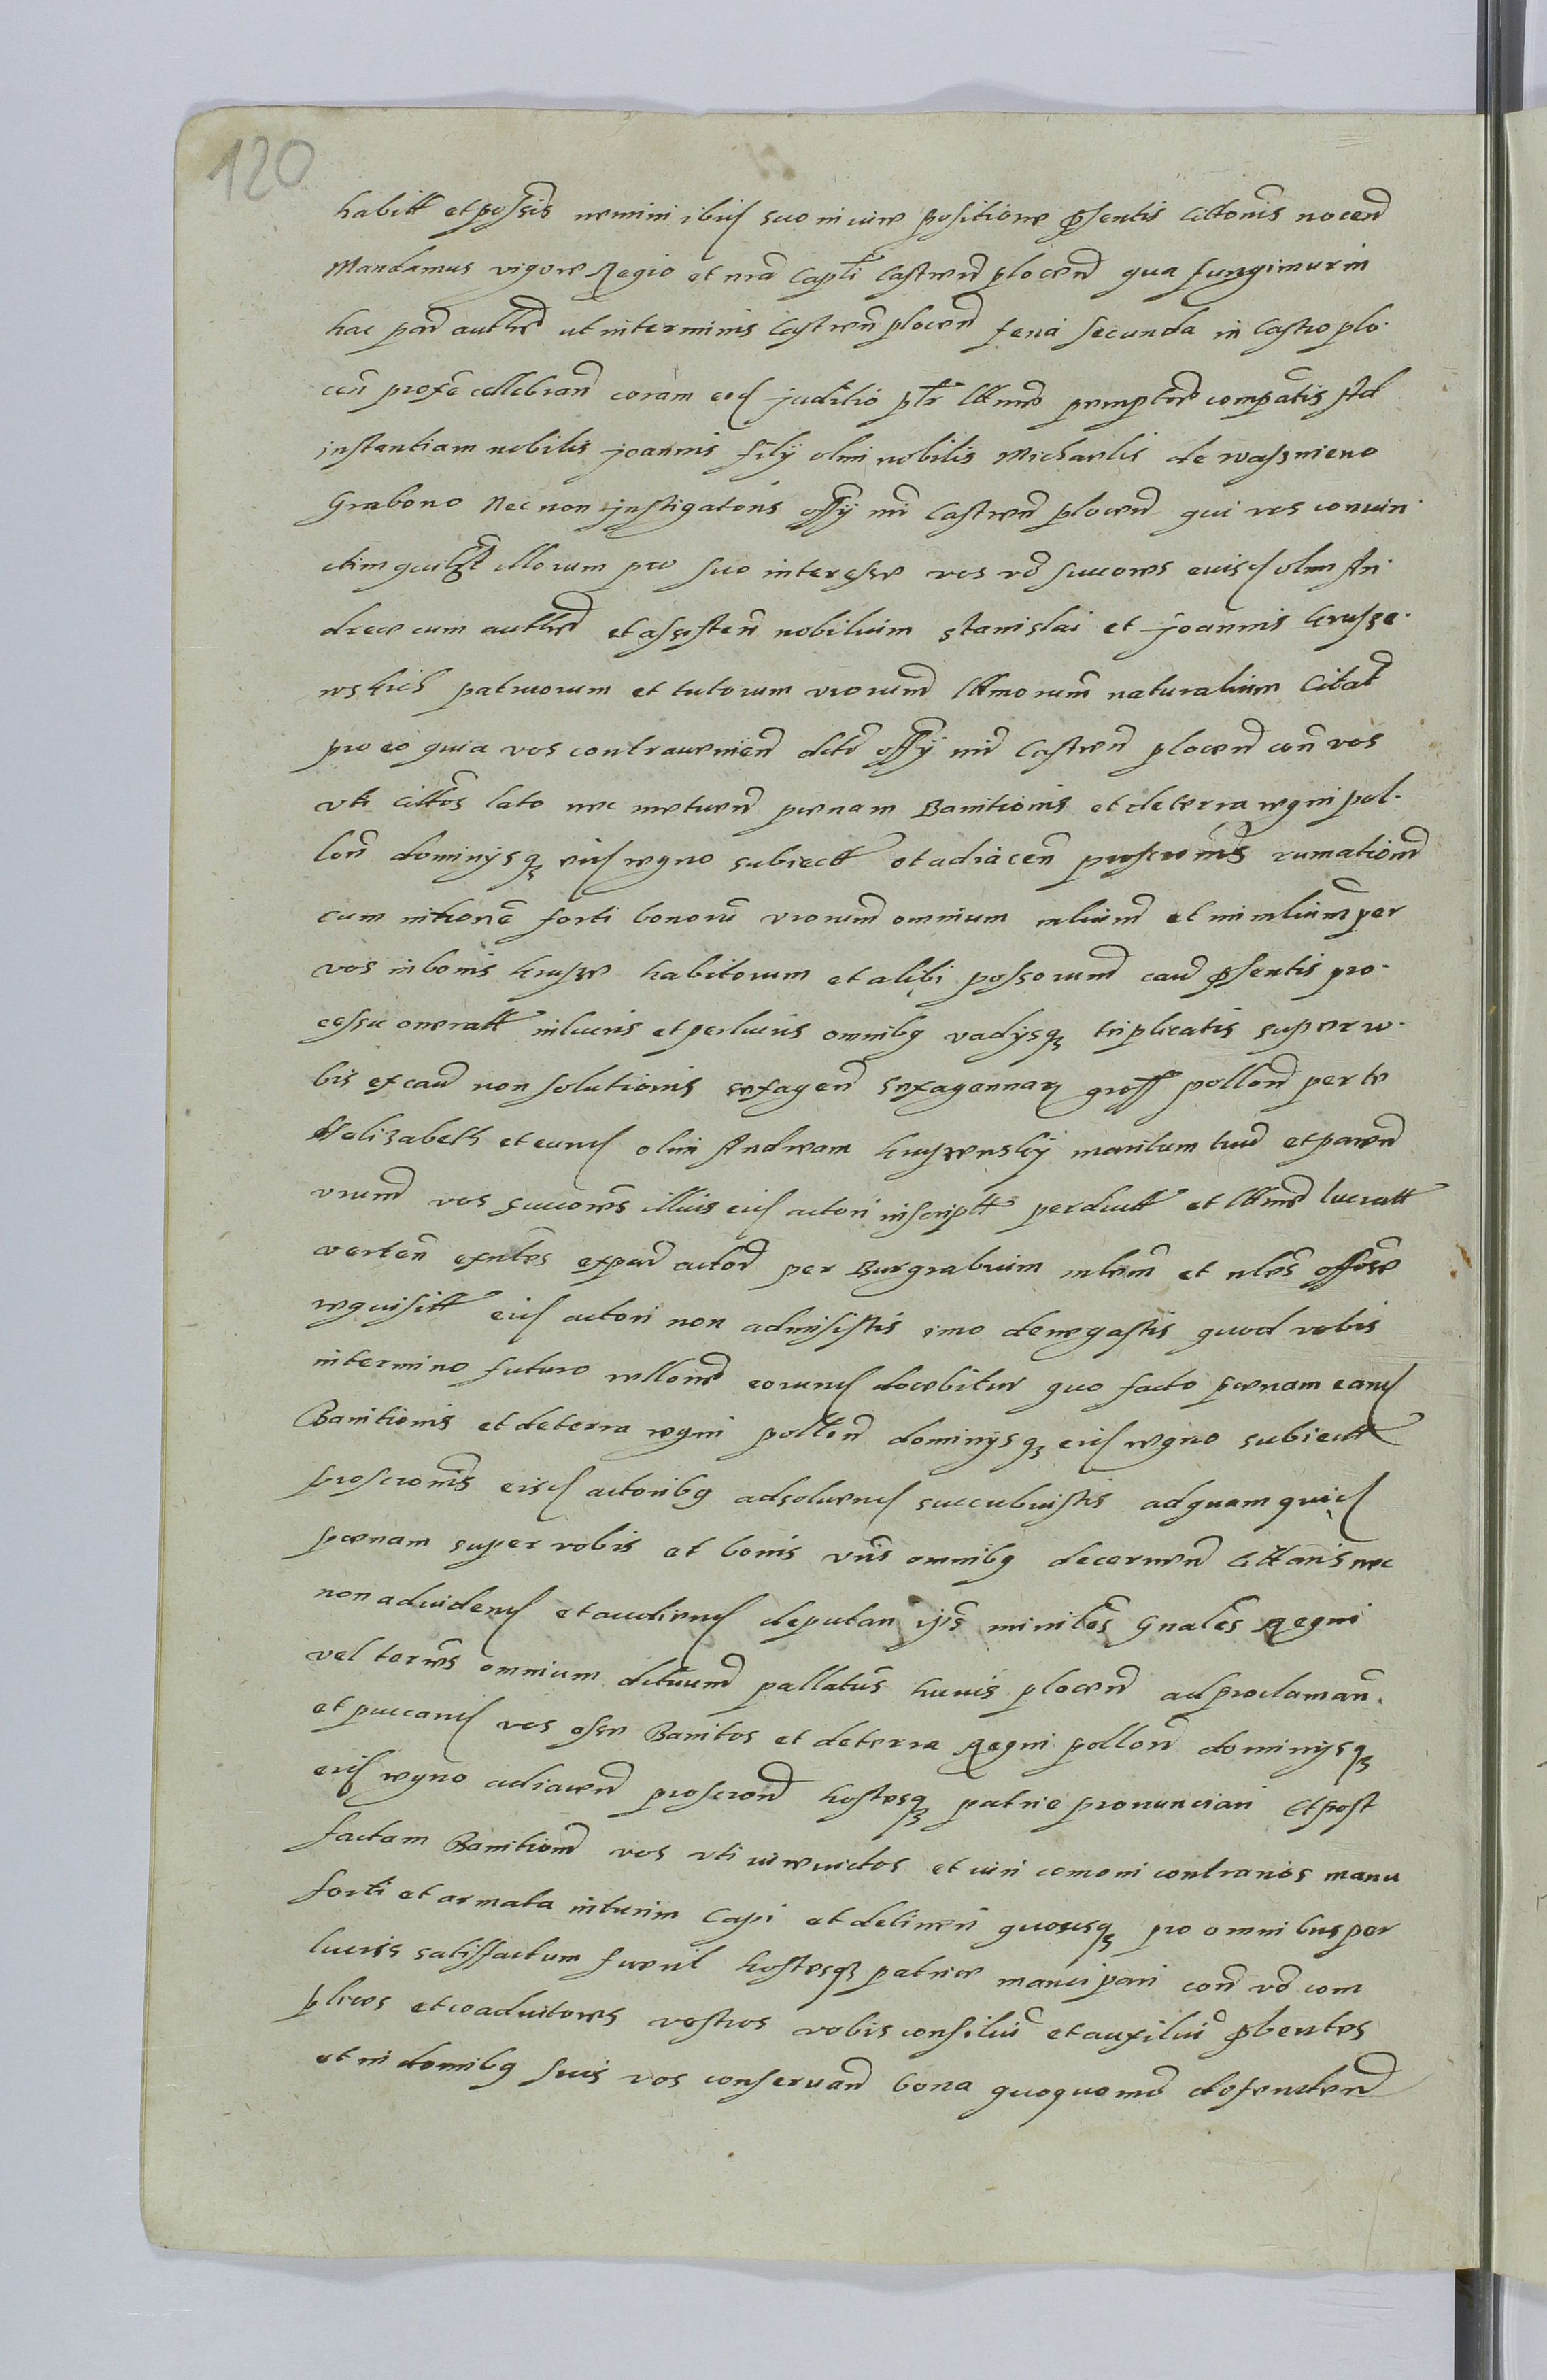 120
habitt et possis nemini ibus suo in iure positione psentis cittonis nocen
Mandamus vigore Regio et nra Capti Castren plocen qua fungimur in
hac par authte ut in terminis Castren plocen feria secunda in Castro plo
cen profe cellebran coram eod juditio ptr lttme pemptorie compatis Ad
instantiam nobilis joannis filÿ olim nobilis Michaelis de wasznieno
Grabono Nec non instigatoris offÿ nri Castren plocen qui vos coniun
ctim quilibt illorum pro suo interesse vos vo succores euisd olim An
dreae cum authte et assisten nobilium stanislai et joannis krusze
wskich patruorum et tutorum vrorum lttmorum naturalium Citat
pro eo quia vos contrauenien dcto offÿ nri Castren plocen con vos
vti cittos lato nec metuen penam Banitionis et de terra regni pol
lon dominÿsq eius regno subiectt et adiacen proscronis rumationem
cum intione forti bonoru vrorum omnium mlium et immlium per
vos in bonis krusze habitorum et alibi possorum cau psentis pro
cessu oneratt in lucris et perlucris omnibq vadÿsq triplicatis super vo
bis ex cau non solutionis sexagen sexagennarz gross pollon per te
Helizabeth et eund olim Andream kruszewskÿ maritum tuu et paren
vrum vos succores illius eid actori inscriptt perductt et lttme lucratt
verten exntes ex par actor per Burgrabium mlem et nles offose
requisitt eid actori non admisistis imo denegastis quod vobis
in termino futuro rellone eorund docebitur quo facto penam eand
Banitionis et de terra regni pollon dominÿsq eid regno subiectt
proscronis eisd actoribq adsoluend succubuistis ad quam quid
penam super vobis et bonis vris omnibq decernen cittaris nec
non ad vidend et audiend deputari ips minitros Gnales Regni
vel terres omnium dictium pallatus huius plocen ad proclaman
et puccand vos esse Banitos et de terra Regni pollon dominÿsq
eid regno adiacen proscron hostesq patrie pronunciari et post
factam Banitione vos vti iureuictos et iuri comoni contrarios manu
forti et armata interim Capi et detineri quousq pro omnibus per
lucris satisfactum fuerit hostesq patriae mancipari con vo com
plices et coadiutores vestros vobis consiliu et auxiliu pbentes
et in domibq suis vos conseruan bona quoquo mo defenden